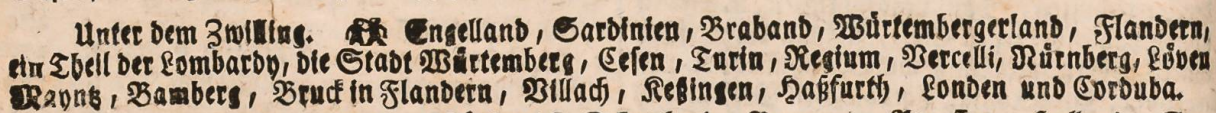 Unter dem Zwilling. ♊ Engelland, Sardinien, Braband, Würtembergerland, Flandern,
ein Theil der Lombardy, die Stadt Würtemberg, Cesen, Turin, Regium, Vercelli, Nürnberg, Löven
Mayntz, Bamberg, Bruck in Flandern, Villach, Keßingen, Haßfurth, Londen und Corduba.